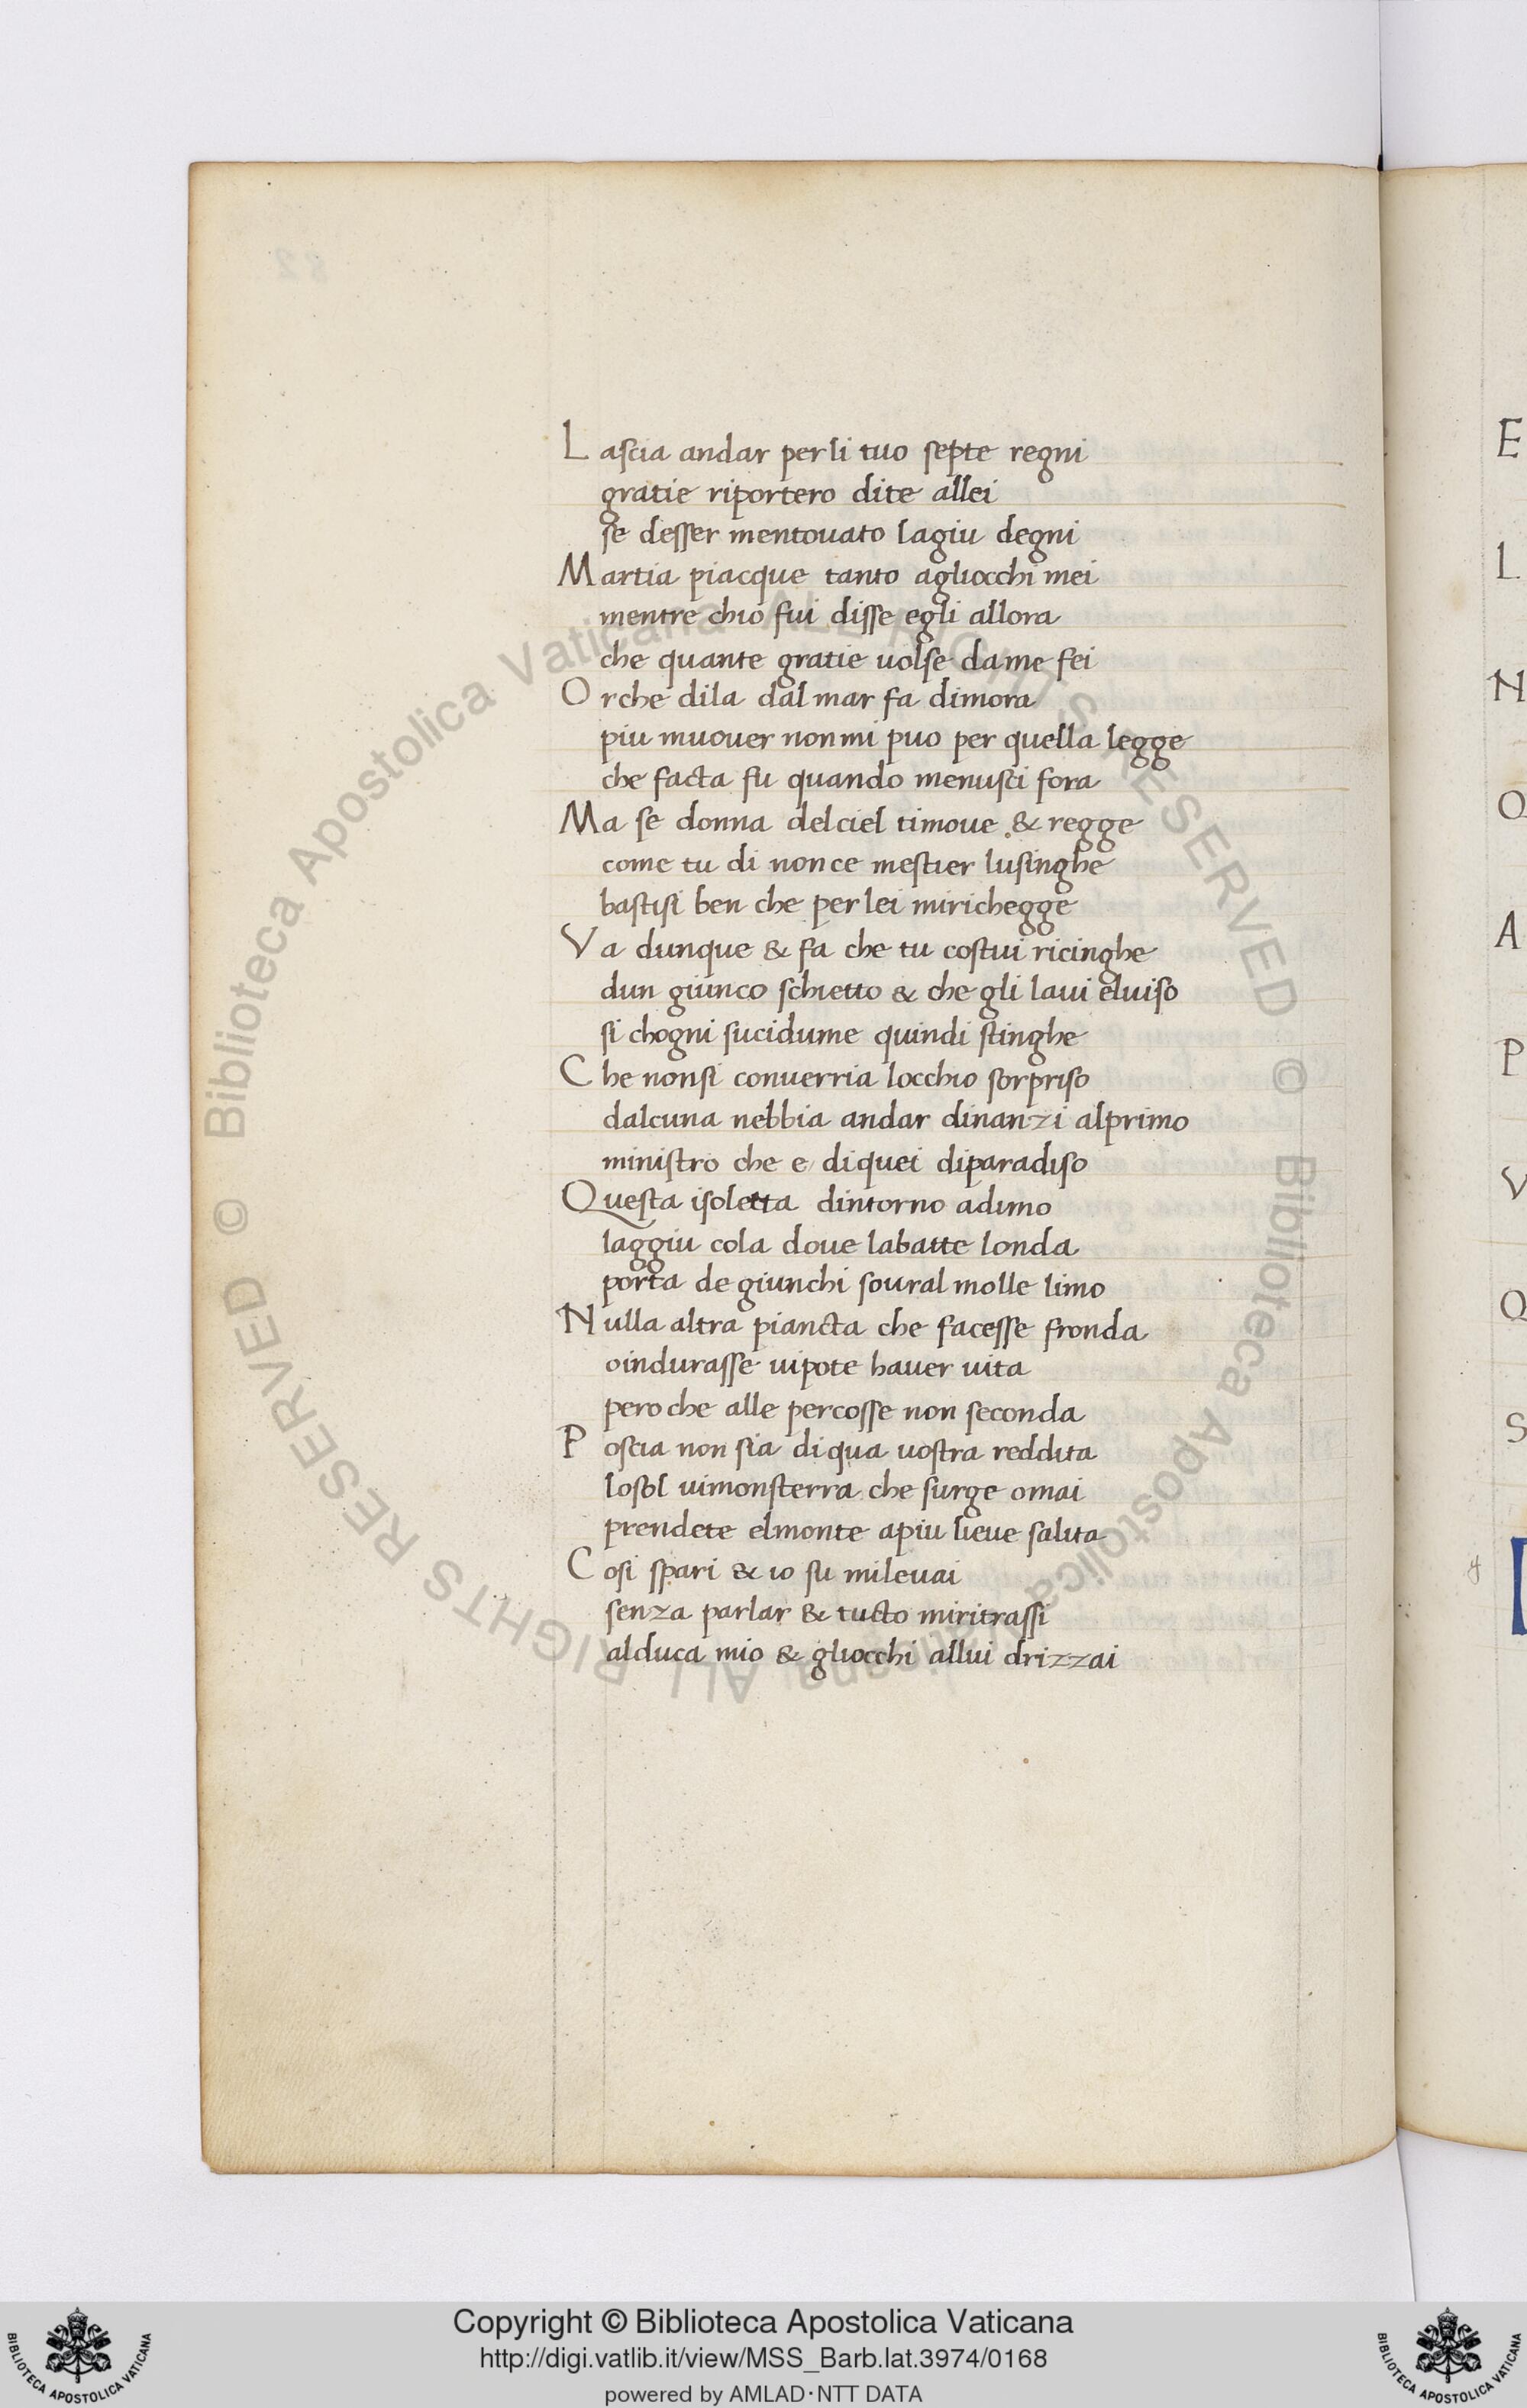 Lascia andar perli tuo septe regni
gratie riportero dite allei
se desser mentouato lagiu degni
Martia piacque tanto agliocchi mei
mentre chio fui disse egli allora
che quante gratie uolse dame fei
Orche dila dal mar fa dimora
piu muouer nonmi puo per quella legge
che facta fu quando menusci fora
Ma se donna delciel timoue & regge
come tu di nonce mestier lusinghe
bastisi ben che perlei mirichegge
Va dunque & fa che tu costui ricinghe
dun giunco schietto & che gli laui eluiso
si chogni sucidume quindi stinghe
Che nonsi conuerria locchio sorpriso
dalcuna nebbia andar dinanzi alprimo
ministro che e diquei diparadiso
Questa isoletta dintorno adimo
laggiu cola doue labatte londa
porta de giunchi soural molle limo
Nulla altra piancta che facesse fronda
oindurasse uipote hauer uita
pero che alle percosse non seconda
Poscia non sia diqua uostra reddita
losol uimonsterra che surge omai
prendete elmonte apiu lieue salita
Cosi spari & io su mileuai
senza parlar & tucto miritrassi
alduca mio & gliocchi allui drizzai
E
L
N
Q
A
P
V
Q
S
© Biblioteca Apostolica Vaticana ALL RIGHTS RESERVED © Biblioteca Apostolica Vaticana ALL RIGHTS RESERVED
Copyright © Biblioteca Apostolica Vaticana
http://digi.vatlib.it/view/MSS_Barb.lat.3974/0168
powered by AMLAD·NTT DATA
BIBLIOTECA APOSTOLICA VATICANA
BIBLIOTECA APOSTOLICA VATICANA